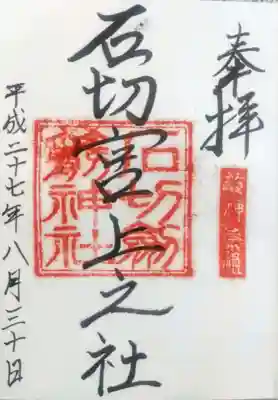 奉拝
石切宮上之社
石切剣箭神社
平成二十七年八月三十日